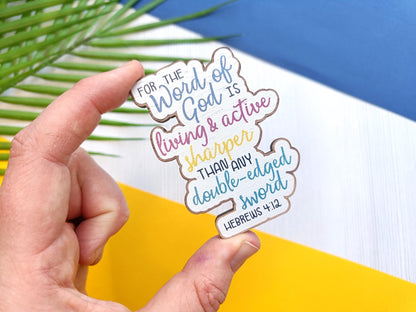 FOR THE
Word of
God IS
living & active
sharper
THAN ANY
double-edged
sword
HEBREWS 4:12